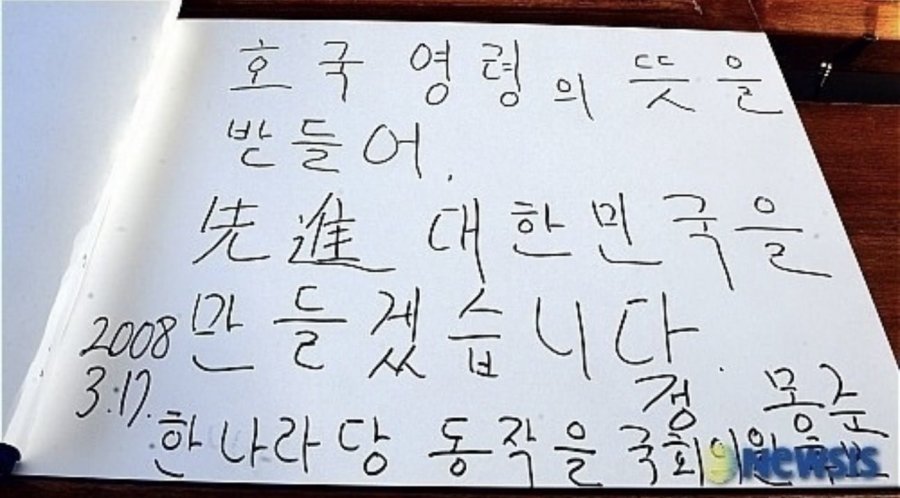 호국영령의 뜻을
받들어.
先進 대한민국을
만들겠습니다.
2008
3.17.
정 몽준
한나라당 동작을 국회의원
Newsis